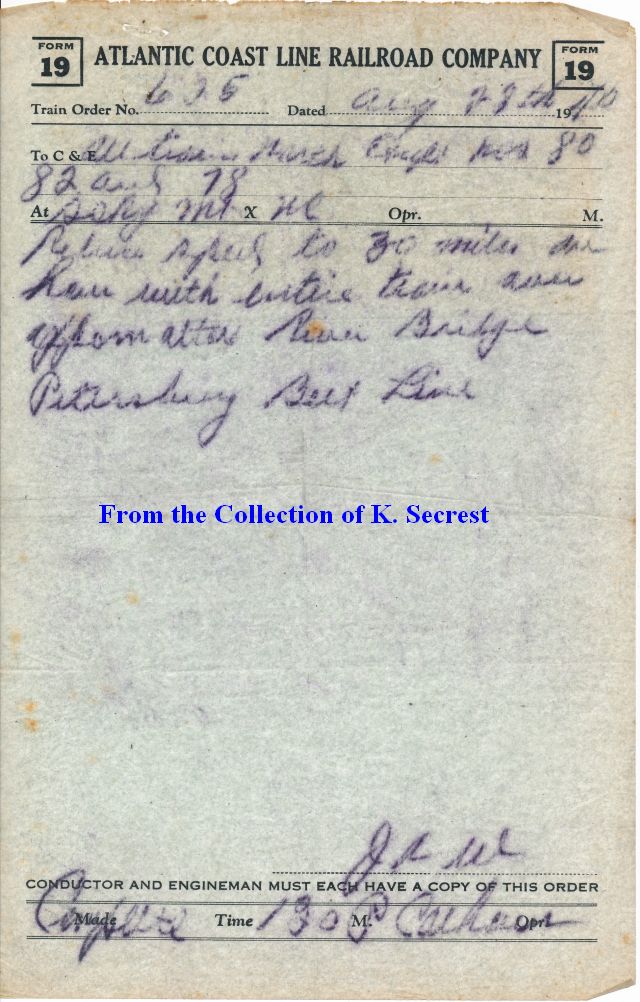 FORM 19 ATLANTIC COAST LINE RAILROAD COMPANY FORM 19
Train Order No. 625 Dated Aug 28th 1940
To C & E All Trains North Except Nos 80
82 and 78
At Rocky Mt X NC Opr. M.
Reduce speed to 30 miles an
hour with entire train over
Appomattox River Bridge
Petersburg Belt Line
From the Collection of K. Secrest
CONDUCTOR AND ENGINEMAN MUST EACH HAVE A COPY OF THIS ORDER
Made Complete Time 130 P M. Opr.